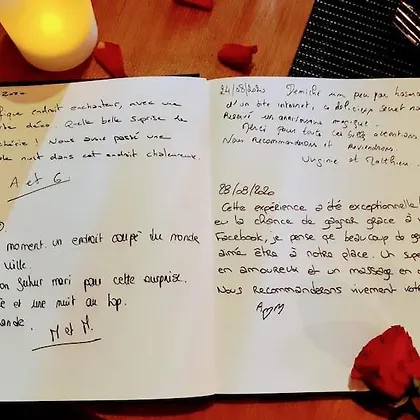 2020
fique endroit enchanteur, avec une
déco. Quelle belle suprise de
chérie ! Nous avons passé une
nuit dans cet endroit chaleureux.
A et G
moment un endroit coupé du monde
ville.
on futur mari pour cette surprise.
et une nuit au top.
ande.
M et M.
24/08/2020 Déniché un peu par hasard
d'un site internet, ce délicieux secret
anniversaire magique.
Merci pour toutes ces belles attentions
Nous recommanderons et reviendrons.
Virginie et Matthieu
28/08/2020
Cette expérience a été exceptionnelle
eu la chance de gagner grâce à
Facebook, je pense que beaucoup de
aimé être à notre place. Un
en amoureux et un massage en
Nous Recommanderons vivement
A M